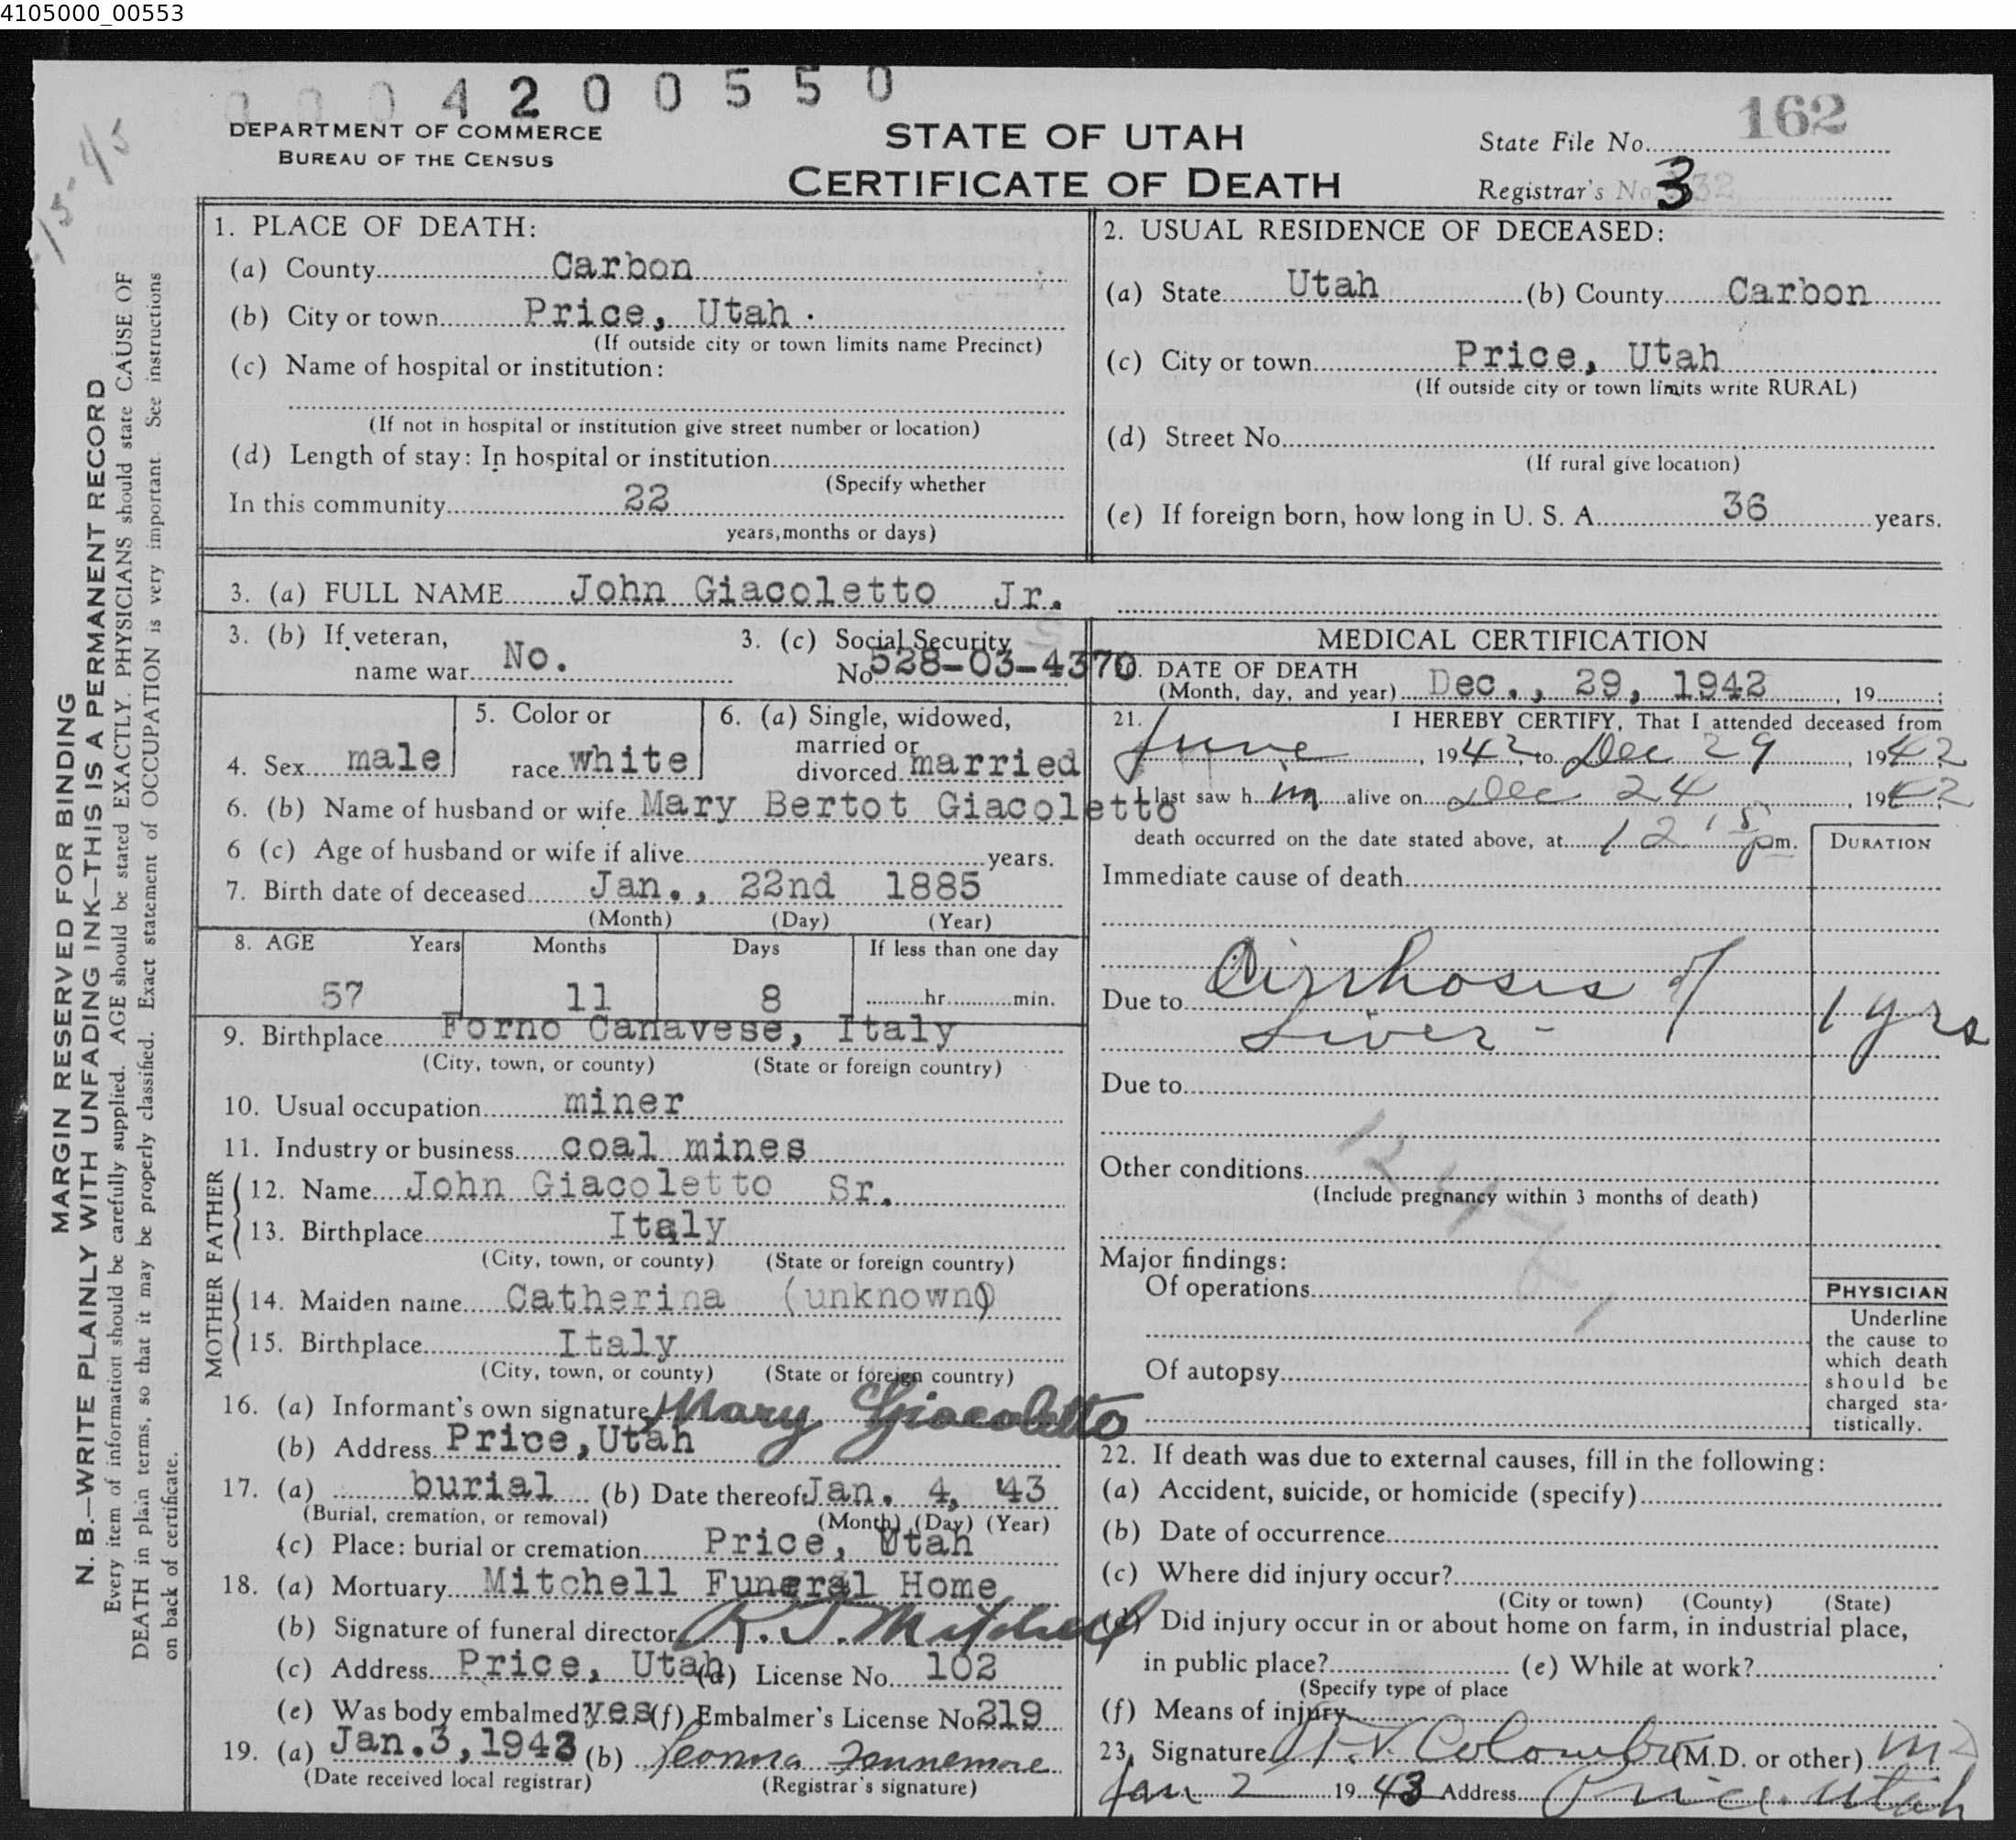 4105000_00553
0 0 0 4 2 0 0 5 5 0
DEPARTMENT OF COMMERCE
BUREAU OF THE CENSUS
STATE OF UTAH
CERTIFICATE OF DEATH
State File No. 162
Registrar's No. 3
MARGIN RESERVED FOR BINDING
N. B.—WRITE PLAINLY WITH UNFADING INK—THIS IS A PERMANENT RECORD
Every item of information should be carefully supplied. AGE should be stated EXACTLY. PHYSICIANS should state CAUSE OF
DEATH in plain terms, so that it may be properly classified. Exact statement of OCCUPATION is very important. See instructions
on back of certificate.
1. PLACE OF DEATH:
(a) County Carbon
(b) City or town Price, Utah.
(If outside city or town limits name Precinct)
(c) Name of hospital or institution:
(If not in hospital or institution give street number or location)
(d) Length of stay: In hospital or institution
(Specify whether
In this community 22
years, months or days)
2. USUAL RESIDENCE OF DECEASED:
(a) State Utah (b) County Carbon
(c) City or town Price, Utah
(If outside city or town limits write RURAL)
(d) Street No.
(If rural give location)
(e) If foreign born, how long in U. S. A. 36 years.
3. (a) FULL NAME John Giacoletto Jr.
3. (b) If veteran, name war No.
3. (c) Social Security No. 528-03-4370
4. Sex male
5. Color or race white
6. (a) Single, widowed, married or divorced married
6. (b) Name of husband or wife Mary Bertot Giacoletto
6 (c) Age of husband or wife if alive years.
7. Birth date of deceased Jan., 22nd 1885
(Month) (Day) (Year)
8. AGE Years Months Days If less than one day
57 11 8 hr. min.
9. Birthplace Forno Canavese, Italy
(City, town, or county) (State or foreign country)
10. Usual occupation miner
11. Industry or business coal mines
FATHER
12. Name John Giacoletto Sr.
13. Birthplace Italy
(City, town, or county) (State or foreign country)
MOTHER
14. Maiden name Catherina (unknown)
15. Birthplace Italy
(City, town, or county) (State or foreign country)
16. (a) Informant's own signature Mary Giacoletto
(b) Address Price, Utah
17. (a) burial (b) Date thereof Jan. 4, '43
(Burial, cremation, or removal) (Month) (Day) (Year)
(c) Place: burial or cremation Price, Utah
18. (a) Mortuary Mitchell Funeral Home
(b) Signature of funeral director R. J. Mitchell
(c) Address Price, Utah (d) License No. 102
(e) Was body embalmed? yes (f) Embalmer's License No. 219
19. (a) Jan.3,1943 (b) Leonora Fannemore
(Date received local registrar) (Registrar's signature)
MEDICAL CERTIFICATION
DATE OF DEATH
(Month, day, and year) Dec., 29, 1942, 19 ;
21. I HEREBY CERTIFY, That I attended deceased from
June, 1942, to Dec 29, 1942;
I last saw him alive on Dec 24, 1942
death occurred on the date stated above, at 12:15 pm.
DURATION
Immediate cause of death
Due to Cirrhosis of
Liver - 1 yrs
Due to
Other conditions
(Include pregnancy within 3 months of death)
Major findings:
Of operations
Of autopsy
PHYSICIAN
Underline
the cause to
which death
should be
charged sta-
tistically.
22. If death was due to external causes, fill in the following:
(a) Accident, suicide, or homicide (specify)
(b) Date of occurrence
(c) Where did injury occur?
(City or town) (County) (State)
(d) Did injury occur in or about home on farm, in industrial place,
in public place? (e) While at work?
(Specify type of place
(f) Means of injury
23. Signature Colombo (M.D. or other) MD
Jan 2 1943 Address Price, Utah